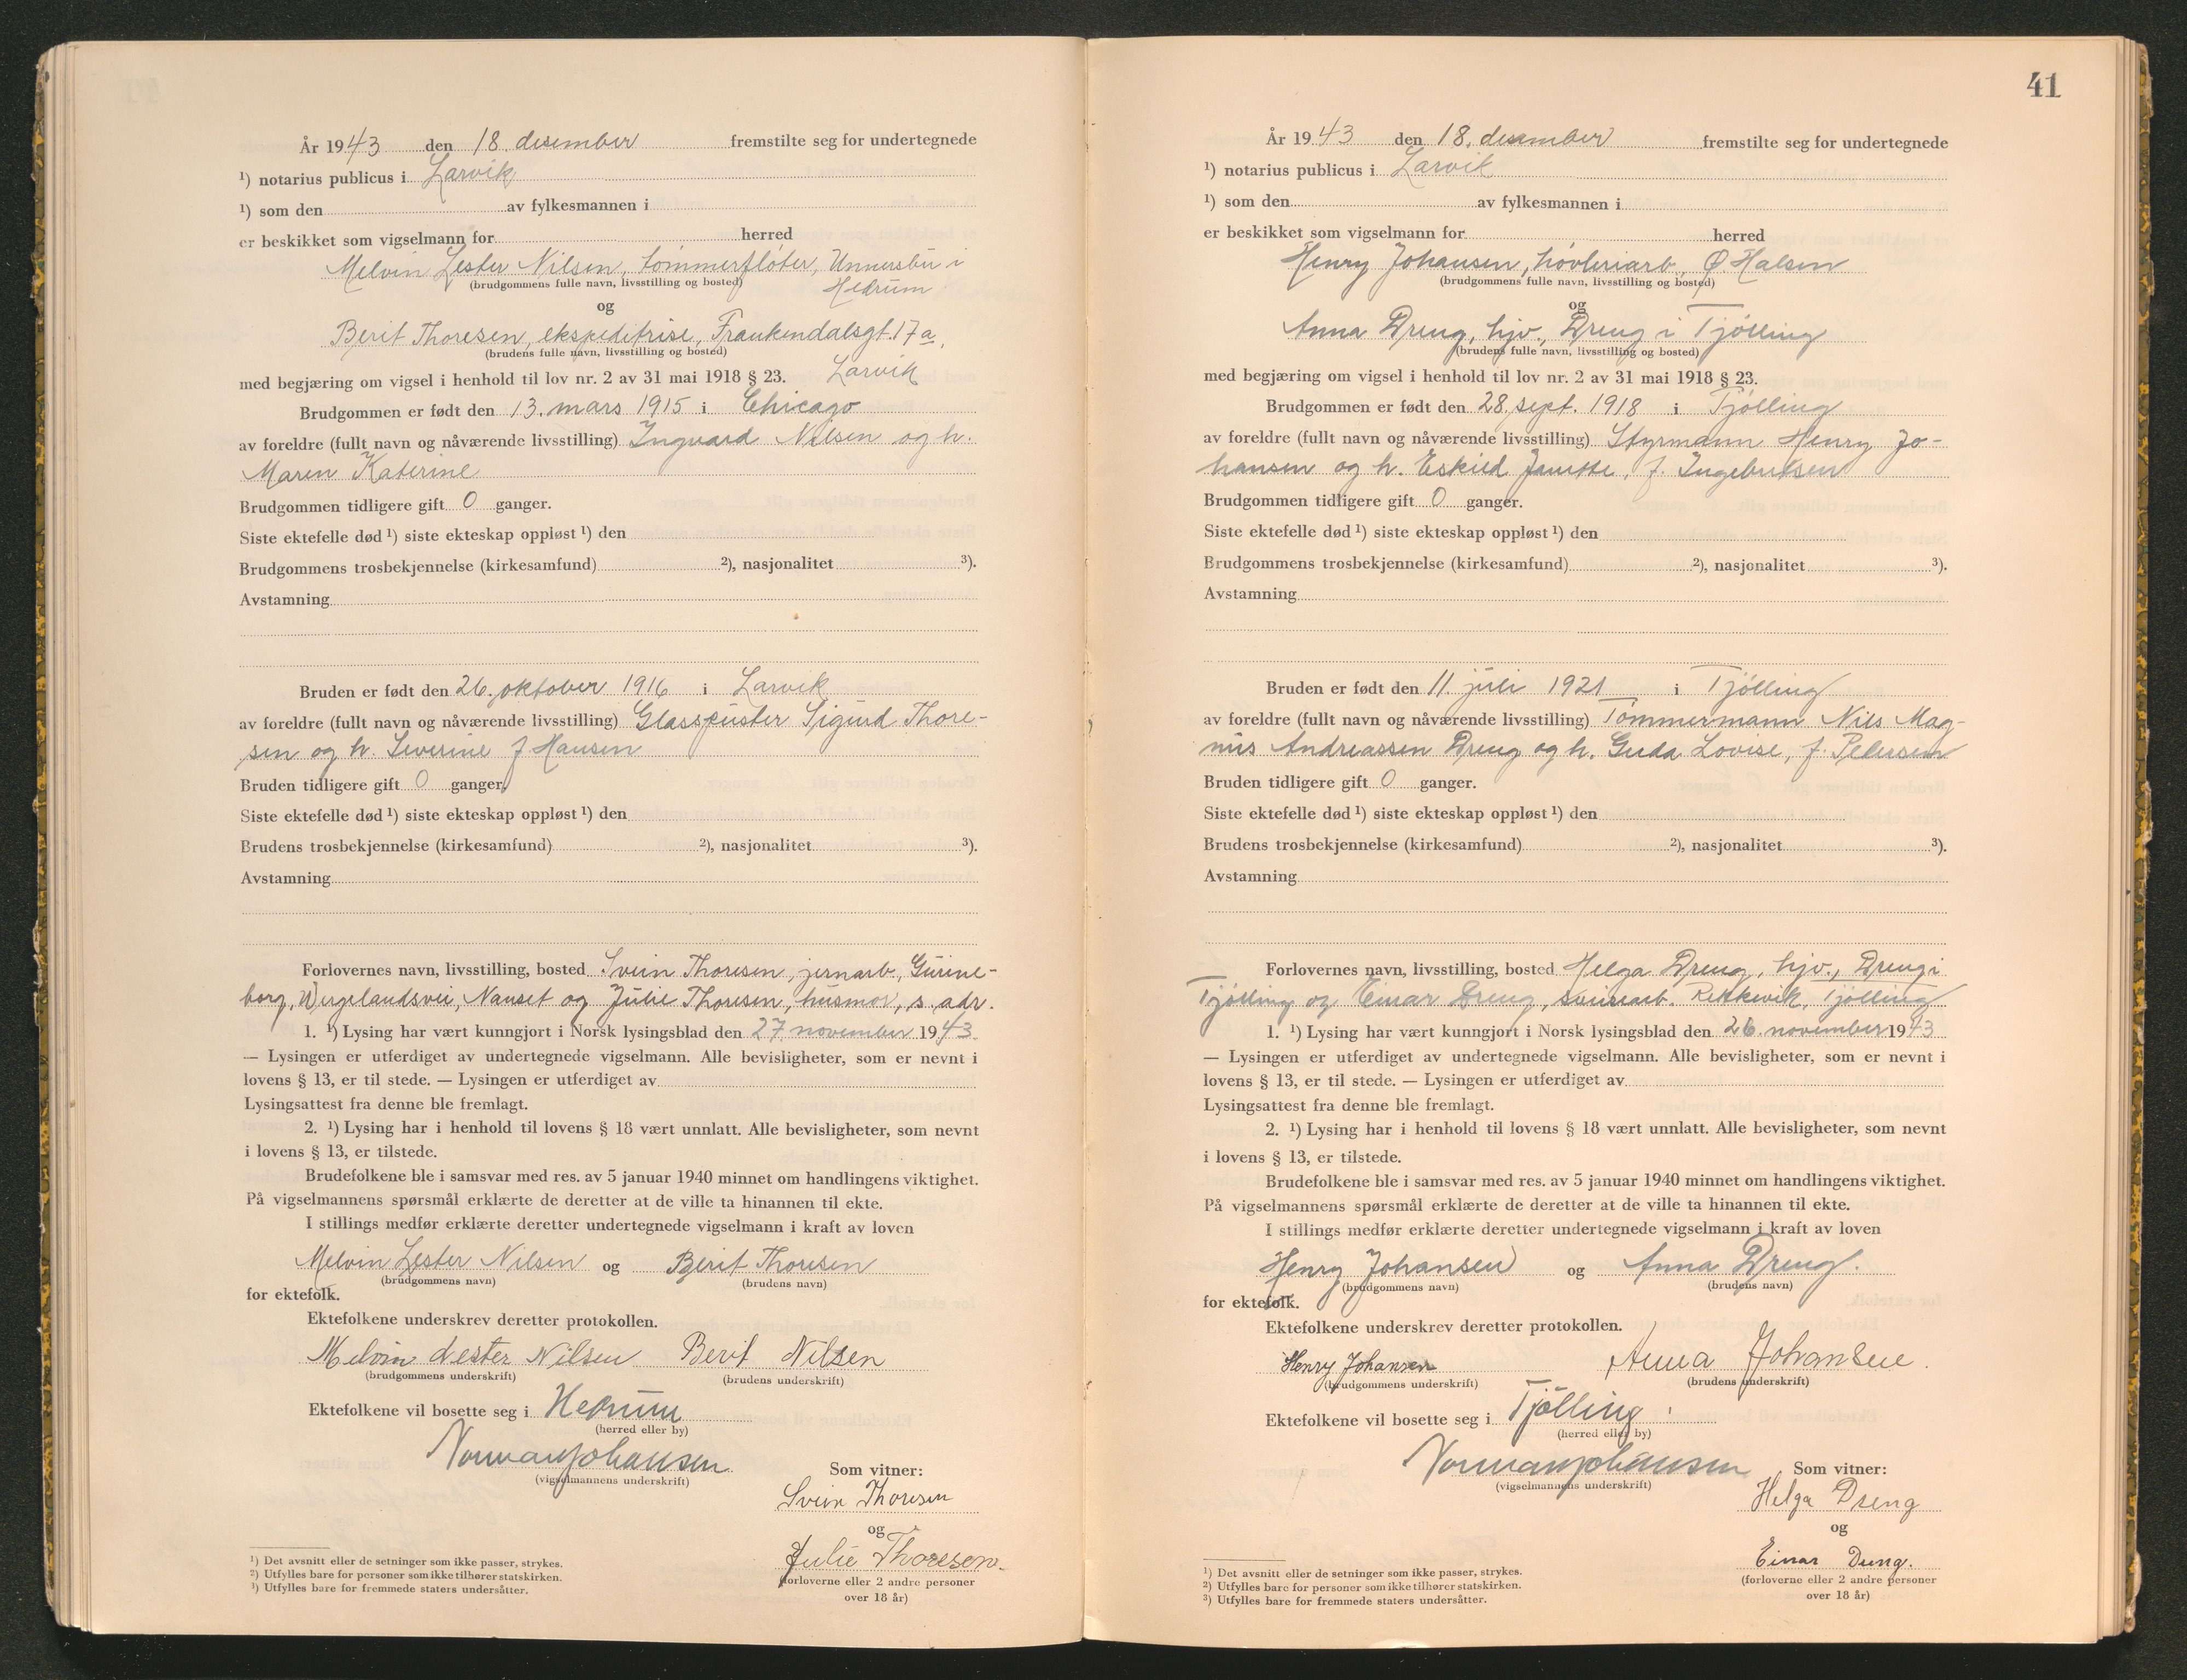 År 1943 den 18. desember fremstilte seg for undertegnede
¹) notarius publicus i Larvik
¹) som den av fylkesmannen i
er beskikket som vigselmann for herred
Melvin Lester Nilsen, tømmerfløter, Unnersbu i
(brudgommens fulle navn, livsstilling og bosted) Hedrum
og
Berit Thoresen, ekspeditrise, Frankendalsgt. 17a,
(brudens fulle navn, livsstilling og bosted)
med begjæring om vigsel i henhold til lov nr. 2 av 31 mai 1918 § 23. Larvik
Brudgommen er født den 13. mars 1915 i Chicago
av foreldre (fullt navn og nåværende livsstilling) Ingvard Nilsen og h.
Maren Katerine
Brudgommen tidligere gift 0 ganger.
Siste ektefelle død ¹) siste ekteskap oppløst ¹) den
Brudgommens trosbekjennelse (kirkesamfund) ²), nasjonalitet ³).
Avstamning
Bruden er født den 26. oktober 1916 i Larvik
av foreldre (fullt navn og nåværende livsstilling) Glasspuster Sigurd Thore-
sen og h. Severine f Hansen
Bruden tidligere gift 0 ganger.
Siste ektefelle død ¹) siste ekteskap oppløst ¹) den
Brudens trosbekjennelse (kirkesamfund) ²), nasjonalitet ³).
Avstamning
Forlovernes navn, livsstilling, bosted Svein Thoresen, jernarb., Gurine-
borg, Wergelandsvei, Nanset og Julie Thoresen, husmor, s. adr.
1. ¹) Lysing har vært kunngjort i Norsk lysingsblad den 27. november 1943
— Lysingen er utferdiget av undertegnede vigselmann. Alle bevisligheter, som er nevnt i
lovens § 13, er til stede. — Lysingen er utferdiget av
Lysingsattest fra denne ble fremlagt.
2. ¹) Lysing har i henhold til lovens § 18 vært unnlatt. Alle bevisligheter, som nevnt
i lovens § 13, er tilstede.
Brudefolkene ble i samsvar med res. av 5 januar 1940 minnet om handlingens viktighet.
På vigselmannens spørsmål erklærte de deretter at de ville ta hinannen til ekte.
I stillings medfør erklærte deretter undertegnede vigselmann i kraft av loven
Melvin Lester Nilsen og Berit Thoresen
(brudgommens navn) (brudens navn)
for ektefolk.
Ektefolkene underskrev deretter protokollen.
Melvin Lester Nilsen Berit Nilsen
(brudgommens underskrift) (brudens underskrift)
Ektefolkene vil bosette seg i Hedrum
(herred eller by)
Norman Johansen
(vigselmannens underskrift)
Som vitner:
Svein Thoresen
og
Julie Thoresen.
(forloverne eller 2 andre personer
over 18 år)
¹) Det avsnitt eller de setninger som ikke passer, strykes.
²) Utfylles bare for personer som ikke tilhører statskirken.
³) Utfylles bare for fremmede staters undersåtter.
41
År 1943 den 18. desember fremstilte seg for undertegnede
¹) notarius publicus i Larvik
¹) som den av fylkesmannen i
er beskikket som vigselmann for herred
Henry Johansen, høvleriarb., Ø Halsen
(brudgommens fulle navn, livsstilling og bosted)
og
Anna Dreng, hjv., Dreng i Tjølling
(brudens fulle navn, livsstilling og bosted)
med begjæring om vigsel i henhold til lov nr. 2 av 31 mai 1918 § 23.
Brudgommen er født den 28. sept. 1918 i Tjølling
av foreldre (fullt navn og nåværende livsstilling) Styrmann Henry Jo-
hansen og h. Eskild Janette, f. Ingebretsen
Brudgommen tidligere gift 0 ganger.
Siste ektefelle død ¹) siste ekteskap oppløst ¹) den
Brudgommens trosbekjennelse (kirkesamfund) ²), nasjonalitet ³).
Avstamning
Bruden er født den 11. juli 1921 i Tjølling
av foreldre (fullt navn og nåværende livsstilling) Tømmermann Nils Mag-
nus Andreassen Dreng og h. Guda Lovise, f. Petersen
Bruden tidligere gift 0 ganger.
Siste ektefelle død ¹) siste ekteskap oppløst ¹) den
Brudens trosbekjennelse (kirkesamfund) ²), nasjonalitet ³).
Avstamning
Forlovernes navn, livsstilling, bosted Helga Dreng, hjv., Dreng i
Tjølling og Einar Dreng, Tjølling
1. ¹) Lysing har vært kunngjort i Norsk lysingsblad den 26. november 1943
— Lysingen er utferdiget av undertegnede vigselmann. Alle bevisligheter, som er nevnt i
lovens § 13, er til stede. — Lysingen er utferdiget av
Lysingsattest fra denne ble fremlagt.
2. ¹) Lysing har i henhold til lovens § 18 vært unnlatt. Alle bevisligheter, som nevnt
i lovens § 13, er tilstede.
Brudefolkene ble i samsvar med res. av 5 januar 1940 minnet om handlingens viktighet.
På vigselmannens spørsmål erklærte de deretter at de ville ta hinannen til ekte.
I stillings medfør erklærte deretter undertegnede vigselmann i kraft av loven
Henry Johansen og Anna Dreng.
(brudgommens navn) (brudens navn)
for ektefolk.
Ektefolkene underskrev deretter protokollen.
Henry Johansen Anna Johansen.
(brudgommens underskrift) (brudens underskrift)
Ektefolkene vil bosette seg i Tjølling
(herred eller by)
Norman Johansen
(vigselmannens underskrift)
Som vitner:
Helga Dreng
og
Einar Dreng.
(forloverne eller 2 andre personer
over 18 år)
¹) Det avsnitt eller de setninger som ikke passer, strykes.
²) Utfylles bare for personer som ikke tilhører statskirken.
³) Utfylles bare for fremmede staters undersåtter.